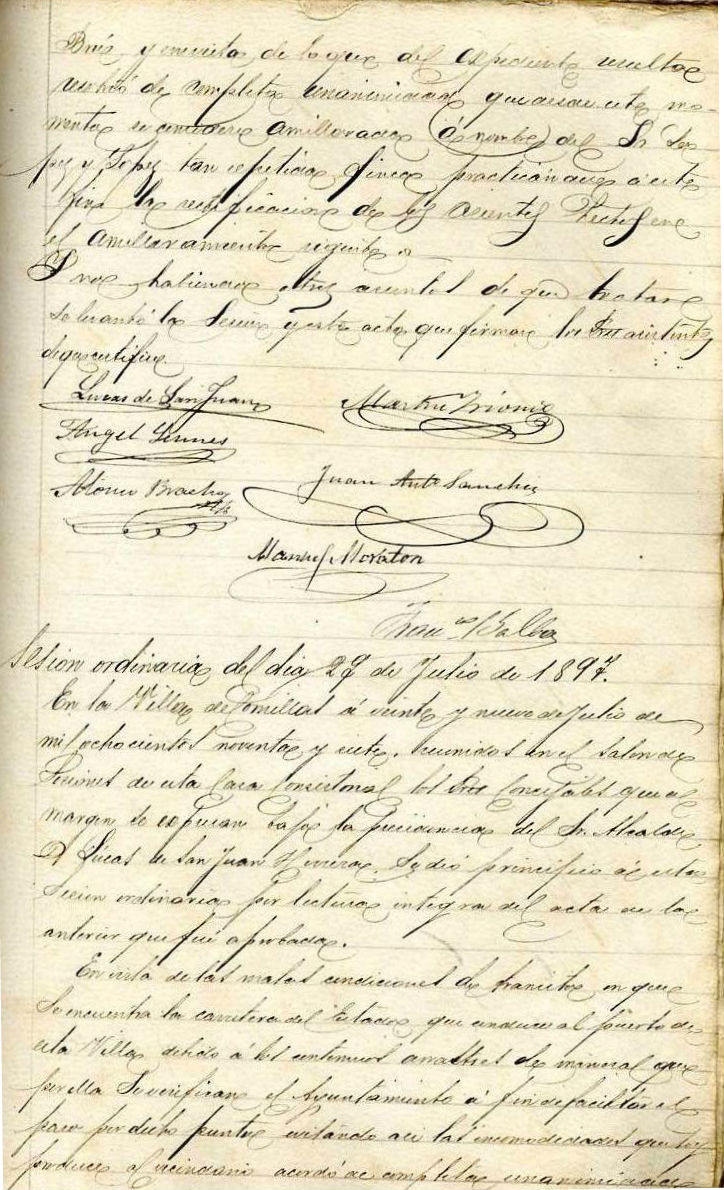 Bras, y en vista de lo que del espediente resulta
resolvió de completa unanimidad que desde este mo-
mento se considere amillarada á nombre del Sr Lo-
pez y Lopez tan repetida finca practicandose á este
fin la rectificacion de los asientos hechos en
el amillaramiento vigente.
Y no habiendo otros asuntos de que tratar
se levantó la Sesion y esta acta que firman los Sres asistentes
de que certifico.
Lucas de San Juan
Martin
Angel
Alonso
Juan Antº Sanchez
Manuel Moraton
Franco Balboa
Sesion ordinaria del dia 29 de Julio de 1897.
En la Villa de Comillas á veinte y nueve de Julio de
mil ochocientos noventa y siete, reunidos en el Salon de
Sesiones de esta Casa Consistorial los Sres Concejales que al
margen se expresan bajo la presidencia del Sr. Alcalde
D. Lucas de San Juan Herrera. Se dió principio á esta
Sesion ordinaria por lectura integra del acta de la
anterior que fué aprobada.
En vista de las malas condiciones de transito en que
se encuentra la carretera del Estado que conduce al puerto de
esta Villa debido á los continuos arrastres de mineral que
por ella se verifican el Ayuntamiento á fin de facilitar el
paso por dicho punto evitando asi las incomodidades que hoy
produce al vecindario acordó de completa unanimidad